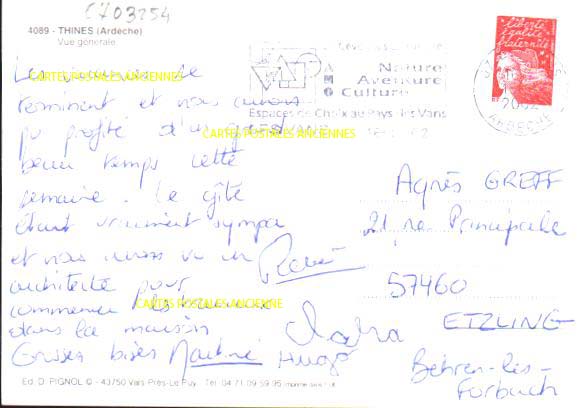 C703254
4089 - THINES (Ardèche)
Vue générale
Les
CARTES POSTALES ANCIENNES
terminent et nous avons
pu profité d'un
CARTES POSTALES ANCIENNES
beau temps cette
semaine. Le gîte
était vraiment sympa
et nous avons vu un
architecte pour
commencer les
CARTES POSTALES ANCIENNES
dans la maison
Grosses bises Martine Hugo
Nature
Aventure
Culture
Espaces de Choix au Pays les Vans
liberté
égalité
fraternité
ARDECHE
Agnès GREFF
21 rue Principale
57460
ETZLING
Behren-lès-
Forbach
Ed. D. PIGNOL © - 43750 Vals-Près-Le Puy. Tél. 04 71 09 59 95